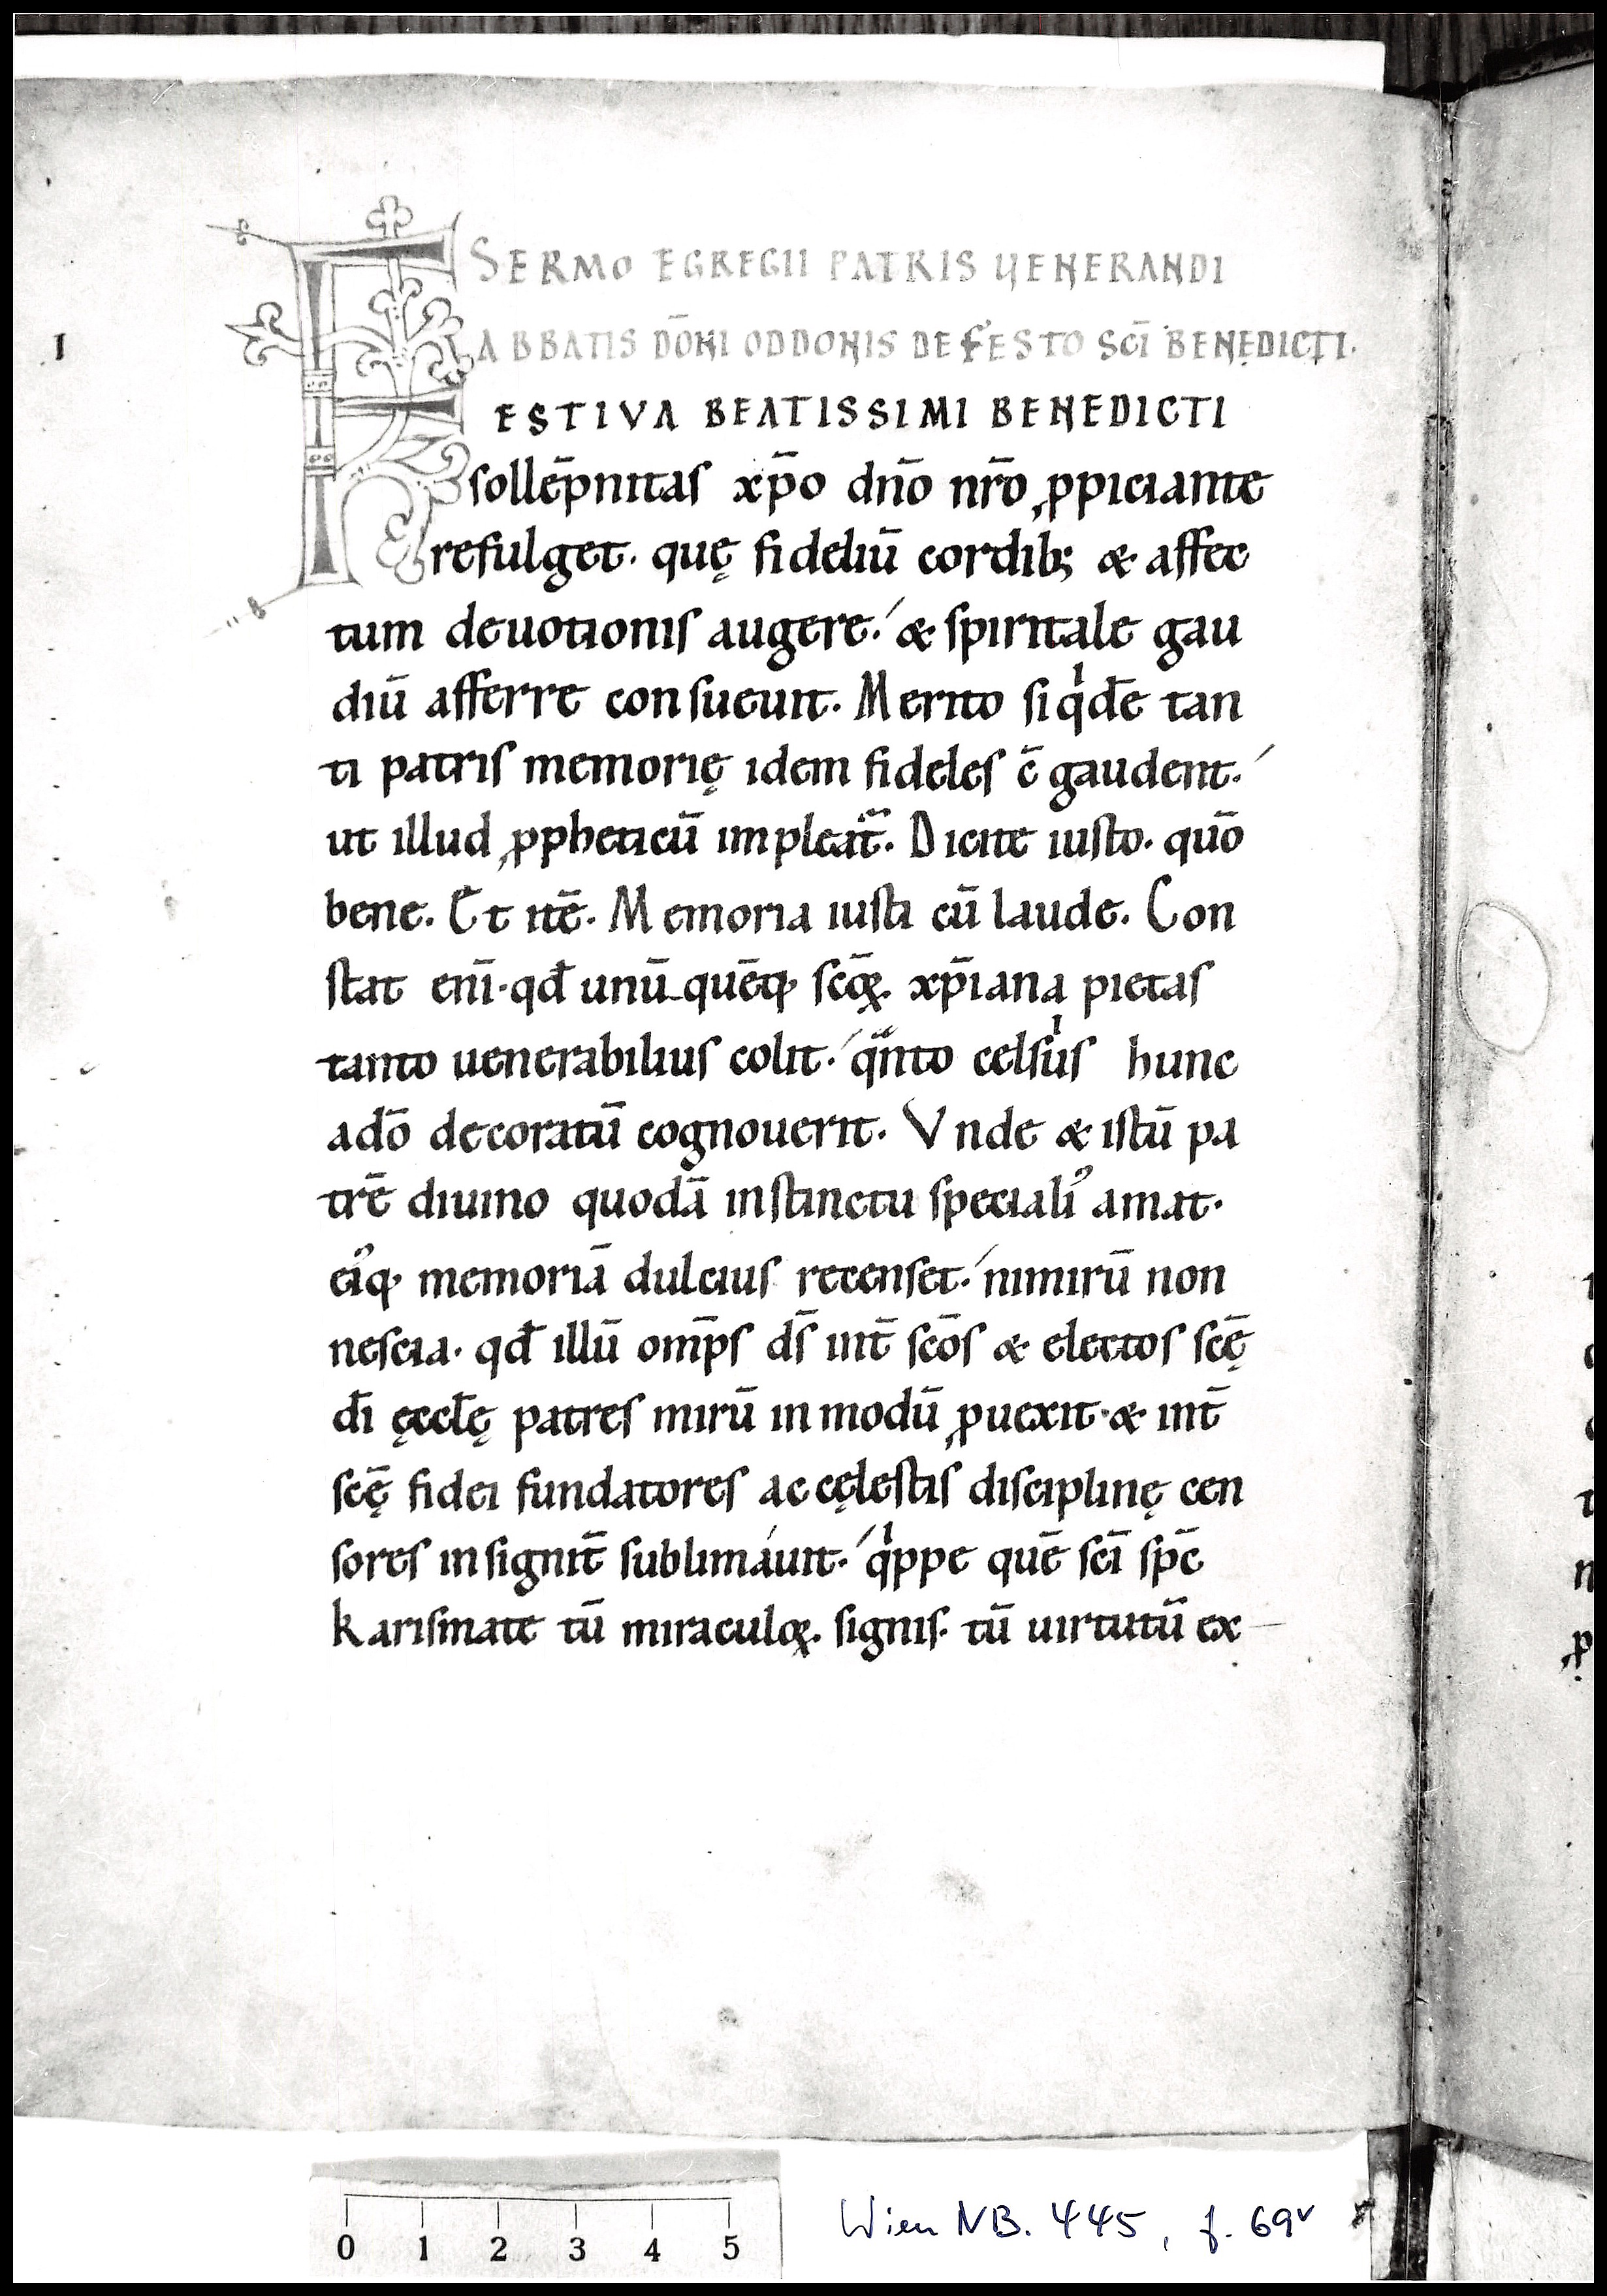 SERMO EGREGII PATRIS UENERANDI
ABBATIS DŌNI ODDONIS DE FESTO SCĪ BENEDICTI.
I
FESTIVA BEATISSIMI BENEDICTI
sollēpnitas xp̄o dn̄o nr̄o ꝓpiciante
refulget. quę fideliū cordib; & affec
tum deuotionis augere. & spiritale gau
diū afferre consueuit. Merito siqͥdē tan
ti patris memorię idem fideles c̄ gaudent.
ut illud ꝓpheticū impleat᷑. Dicite iusto. quō
bene. Et itē. Memoria iusti cū laude. Con
stat enī. qđ unū quēq; scōꝝ. xp̄iana pietas
tanto uenerabilius colit. qͣnto celsiͥus hunc
adō decoratū cognouerit. Vnde & istū pa
trē diuino quodā instinctu speciali᾽ amat.
ei᾽q; memoriā dulcius recenset. nimirū non
nescia. qđ illū om̄ps ds̄ int̄ scōs & electos scę̄
dī ęccłę patres mirū in modū ꝓuexit. & int̄
scę̄ fidei fundatores ac cęlestis disciplinę cen
sores insignit̄ sublimáuit. qͥppe quē scī sp̄c
karismate tū miraculoꝝ. signis. tū uirtutū ex
0 1 2 3 4 5
Wien NB. 445, f. 69v